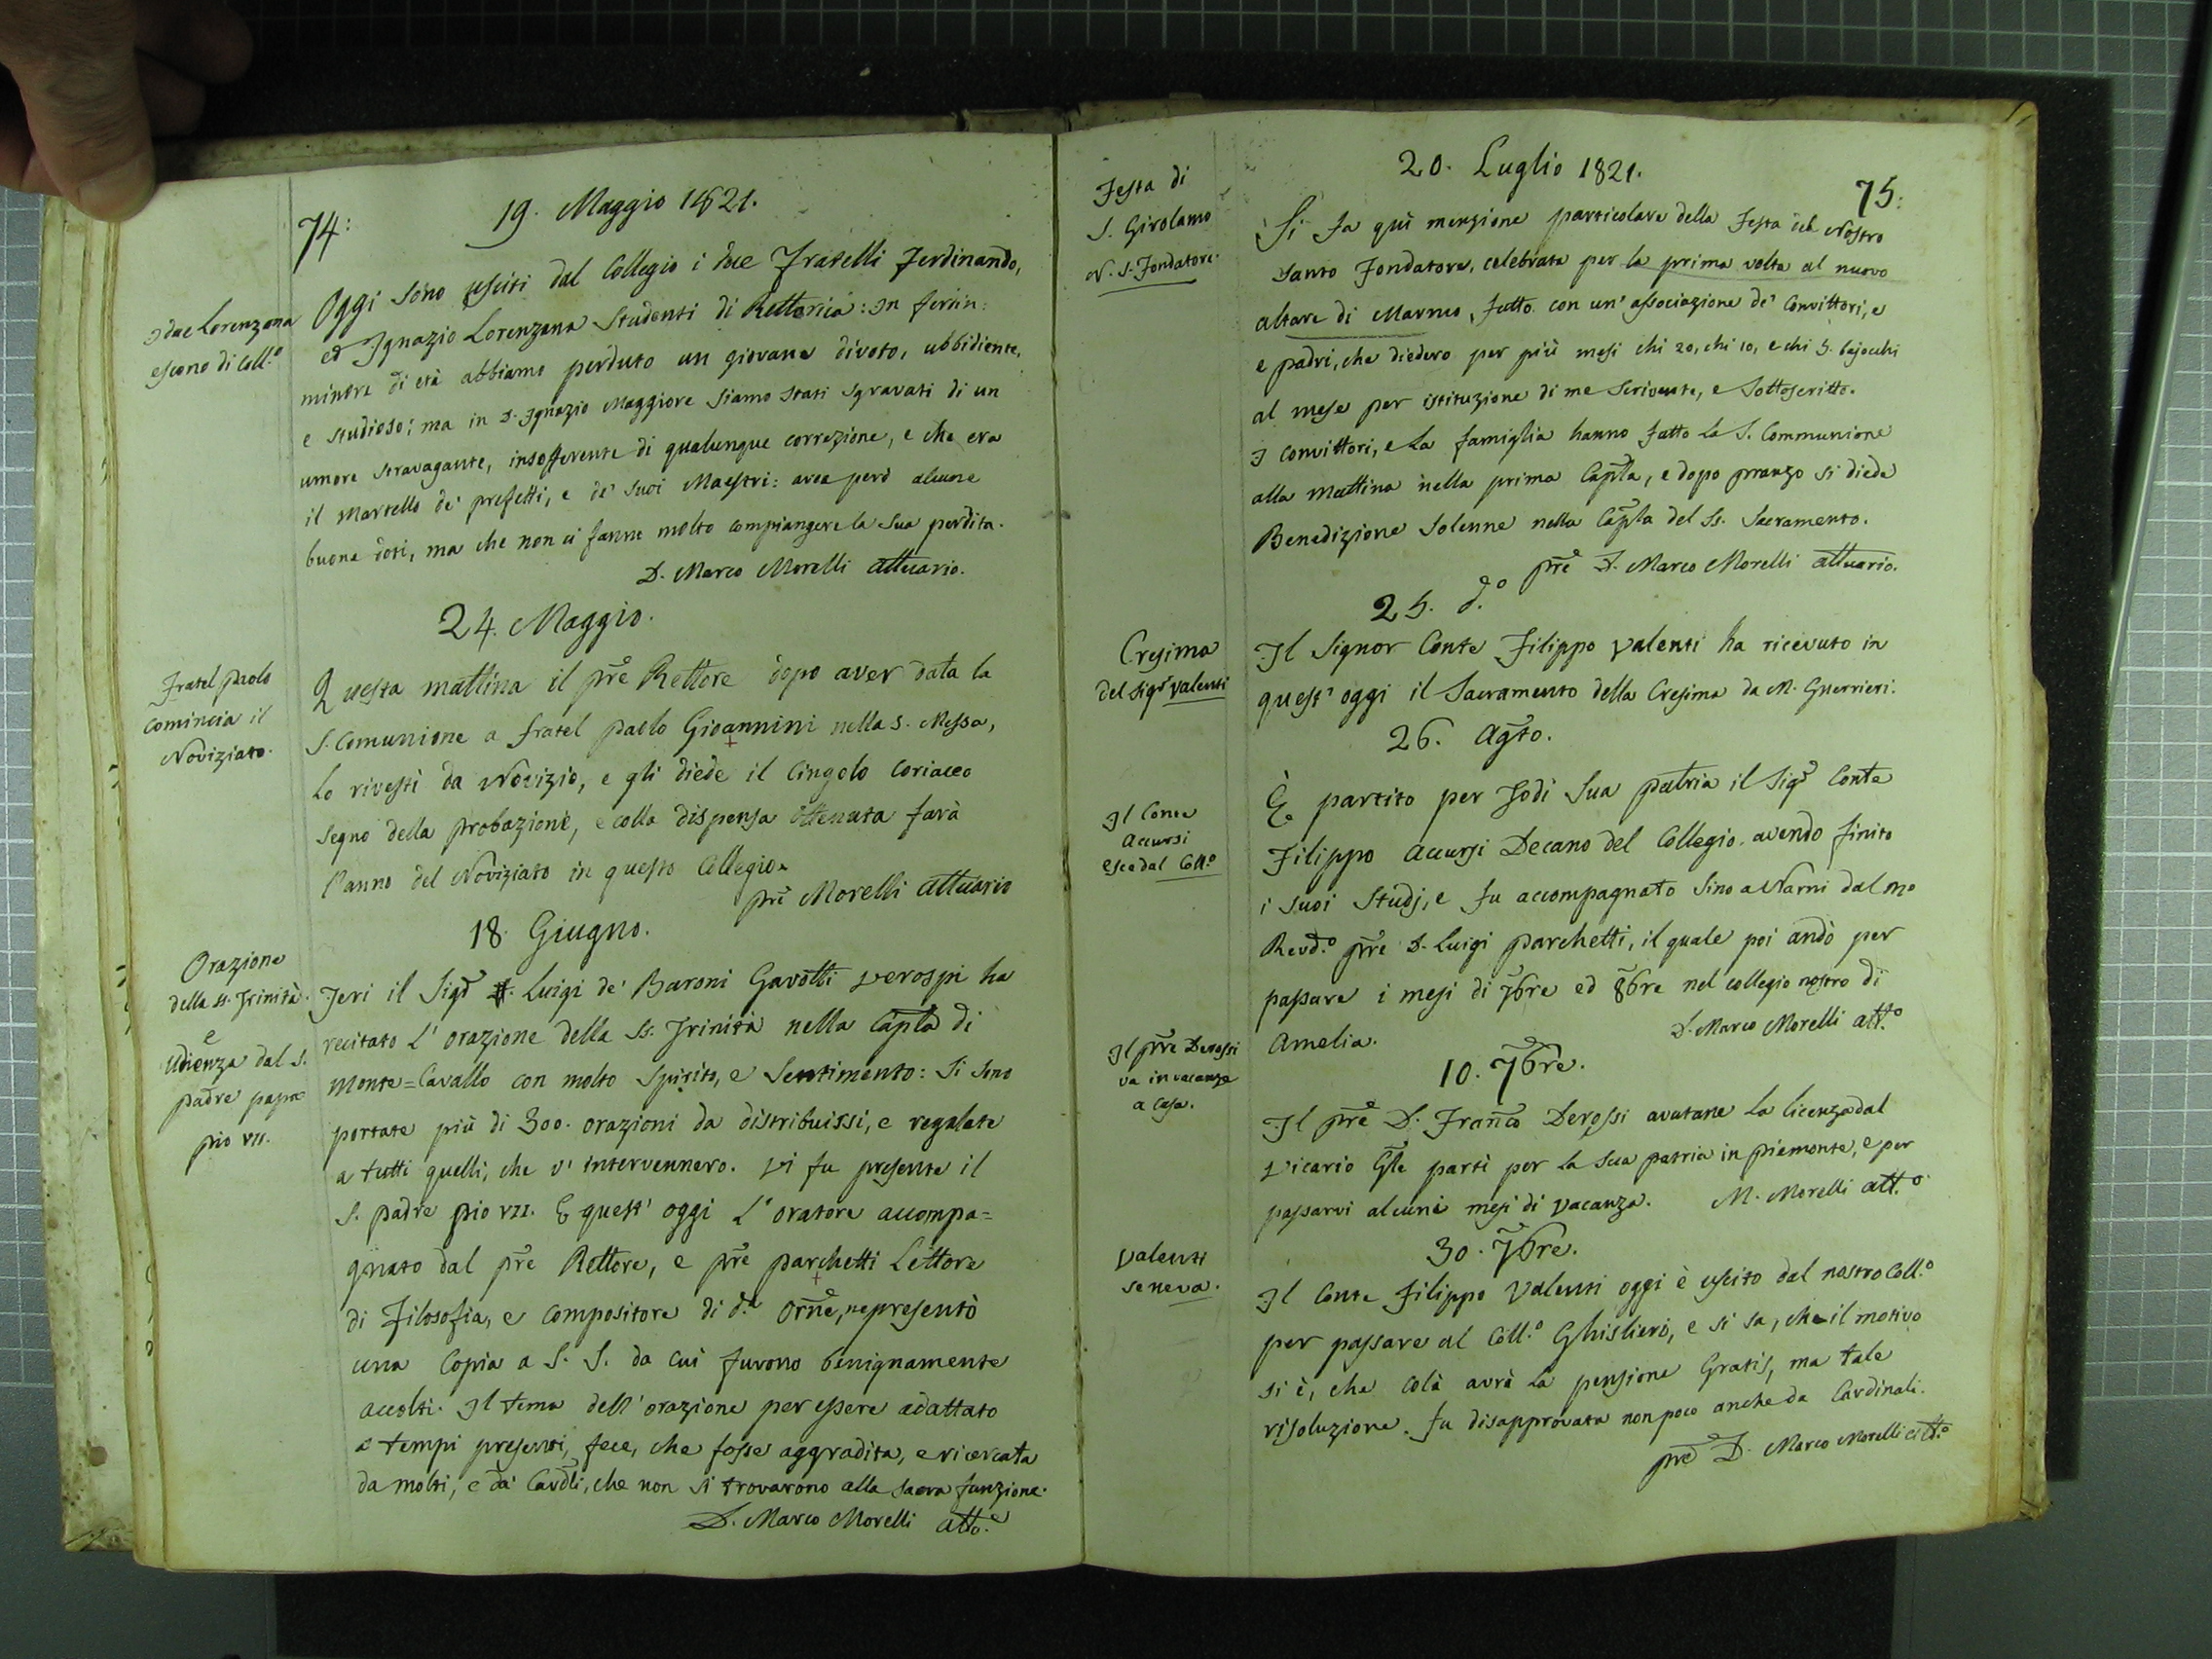 74:
19. Maggio 1821.
I due Lorenzana
escono di Coll.o
Oggi sono usciti dal Collegio i due Fratelli Ferdinando,
ed Ignazio Lorenzana Studenti di Rettorica: In Ferdin:
minore di età abbiamo perduto un giovane divoto, ubbidiente,
e studioso; ma in D. Ignazio Maggiore siamo stati sgravati di un
umore stravagante, insofferente di qualunque correzione, e che era
il martello de' prefetti, e de' suoi Maestri: avea però alcune
buone doti, ma che non ci fanno molto compiangere la sua perdita.
D. Marco Morelli attuario.
24. Maggio.
Fratel paolo
comincia il
Noviziato.
Questa mattina il prē Rettore dopo aver data la
S. Comunione a fratel paolo Gioannini nella S. Messa,
lo rivestì da Novizio, e gli diede il Cingolo coriaceo
segno della probazione, e colla dispensa ottenuta farà
l'anno del Noviziato in questo Collegio.
prē Morelli attuario
18. Giugno.
Orazione
della SS. Trinità.
e
Udienza dal S.
padre papa
pio VII.
Jeri il Sigr̄ Luigi de' Baroni Gavotti Verospi ha
recitato l'orazione della SS. Trinità nella Capl̄a di
Monte=Cavallo con molto spirito, e Sentimento: Si sono
portate più di 300. orazioni da distribuissi, e regalate
a tutti quelli, che v'intervennero. Vi fu presente il
S. padre pio VII. E quest'oggi l'oratore accompa=
gnato dal prē Rettore, e prē parchetti Lettore
di Filosofia, e compositore di d.a Orn̄e, ne presentò
una Copia a S. S. da cui furono benignamente
accolti. Il tema dell'orazione per essere adattato
a' tempi presenti, fece, che fosse aggradita, e ricercata
da molti, e da' Cardl̄i, che non si trovarono alla sacra funzione.
D. Marco Morelli atto.e
75:
20. Luglio 1821.
Festa di
S. Girolamo
N. S. Fondatore.
Si fa quì menzione particolare della Festa del Nostro
santo Fondatore, celebrata per la prima volta al nuovo
altare di Marmo, fatto con un'associazione de' Convittori, e
e padri, che diedero per più mesi chi 20, chi 10, e chi 5. bajocchi
al mese per istituzione di me Scrivente, e Sottoscritto.
I convittori, e la famiglia hanno fatto la S. Communione
alla mattina nella prima Capl̄a, e dopo pranzo si diede
Benedizione solenne nella Capl̄a del SS. Sacramento.
prē D. Marco Morelli attuario.
25. d.o
Cresima
del Sigr̄ Valenti
Il Signor Conte Filippo Valenti ha ricevuto in
quest'oggi il Sacramento della Cresima da M. Guerrieri.
26. Agto.
Il Conte
Accursi
esce dal Coll.o
È partito per Todi sua patria il Sigr̄ Conte
Filippo Accursi Decano del Collegio. avendo finito
i suoi Studj, e fu accompagnato sino a Narni dal mo
Revd.o prē D. Luigi parchetti, il quale poi andò per
passare i mesi di 7bre ed 8bre nel collegio nostro di
Amelia.
D. Marco Morelli att.o
10. 7bre.
Il prē Derossi
va in vacanze
a casa.
Il prē D. Franc̄o Derossi avutane la licenza dal
Vicario Gl̄e partì per la sua patria in piemonte, e per
passarvi alcuni mesi di vacanza. M. Morelli att.o
30. 7bre.
Valenti
se ne va.
Il Conte Filippo Valenti oggi è uscito dal nostro Coll.o
per passare al Coll.o Ghislieri, e si sa, che il motivo
si è, che colà avrà la pensione Gratis, ma tale
risoluzione. fu disapprovata non poco anche da Cardinali.
prē D. Marco Morelli att.o